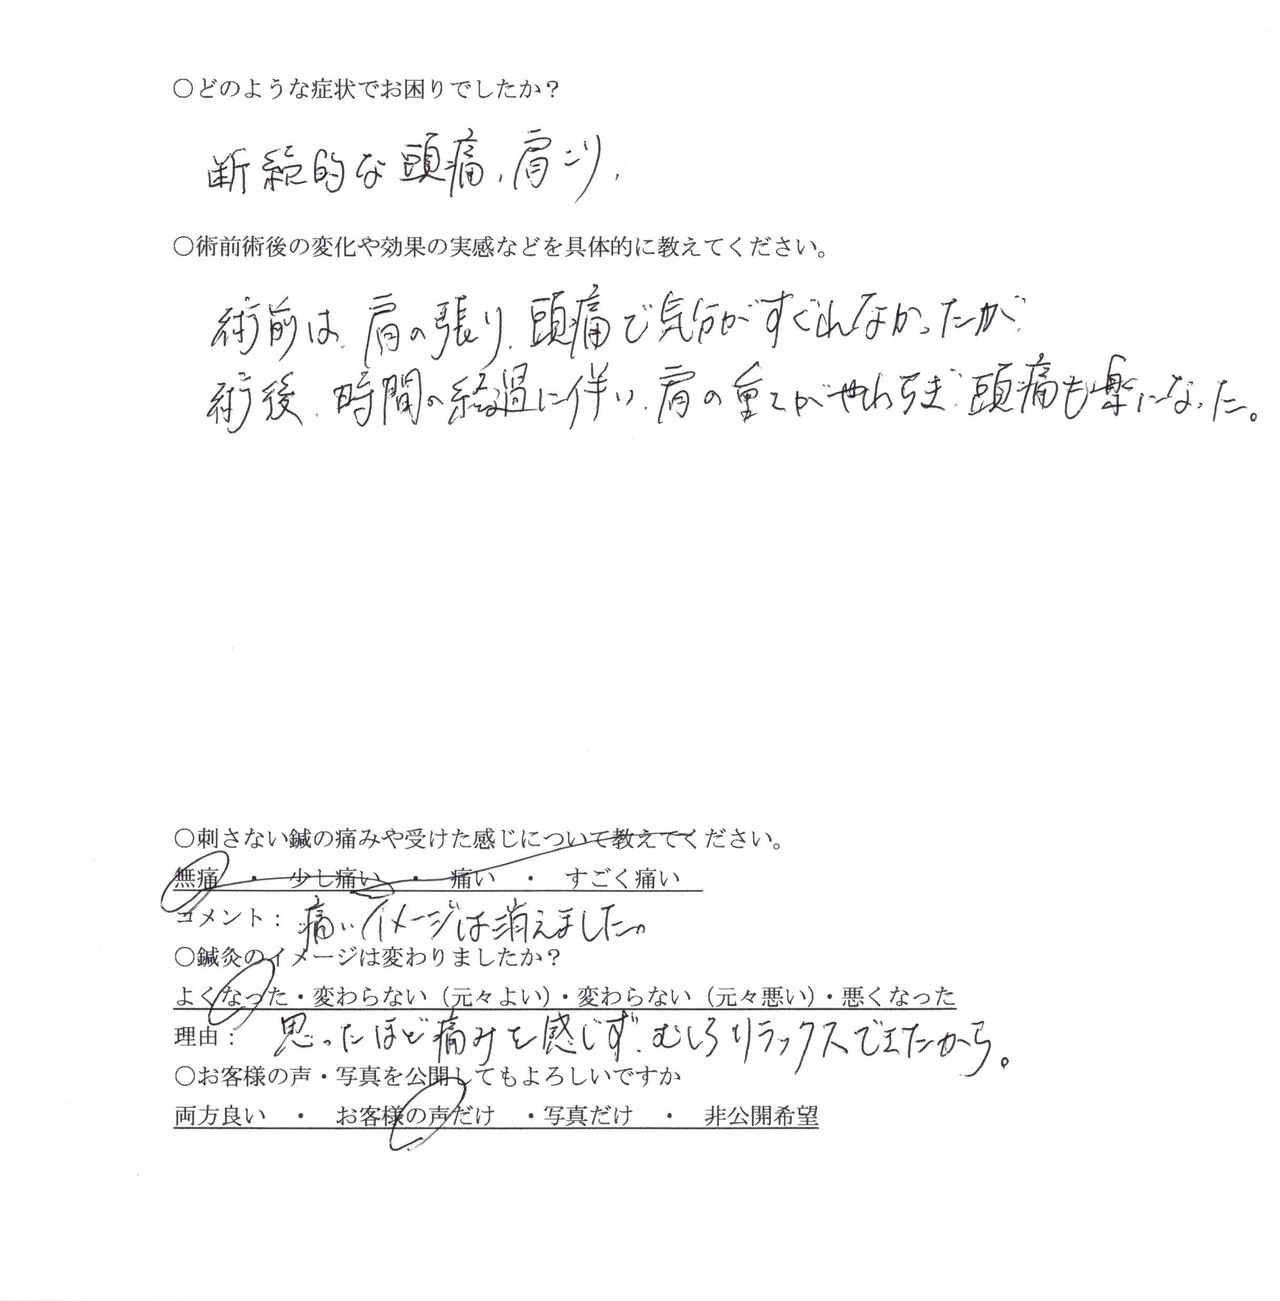 〇どのような症状でお困りでしたか？
断続的な頭痛、肩こり、
〇術前術後の変化や効果の実感などを具体的に教えてください。
術前は、肩の張り、頭痛で気分がすぐれなかったが、
術後、時間の経過に伴い、肩の重さがやわらぎ、頭痛も楽になった。
〇刺さない鍼の痛みや受けた感じについて教えてください。
無痛 ・ 少し痛い ・ 痛い ・ すごく痛い
コメント： 痛いイメージは消えました。
〇鍼灸のイメージは変わりましたか？
よくなった・変わらない（元々よい）・変わらない（元々悪い）・悪くなった
理由： 思ったほど痛みを感じず、むしろリラックスできたから。
〇お客様の声・写真を公開してもよろしいですか
両方良い ・ お客様の声だけ ・写真だけ ・ 非公開希望